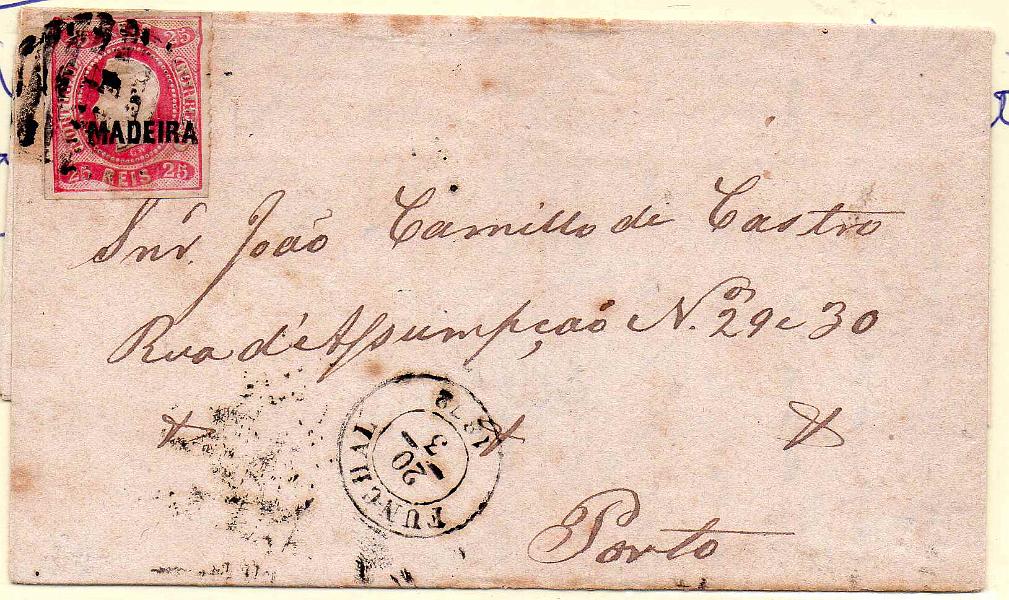 25
CORREIO
MADEIRA
25 REIS 25
Snr. João Camillo de Castro
Rua d'Assumpção N.os 29 e 30
FUNCHAL
20
3
Porto